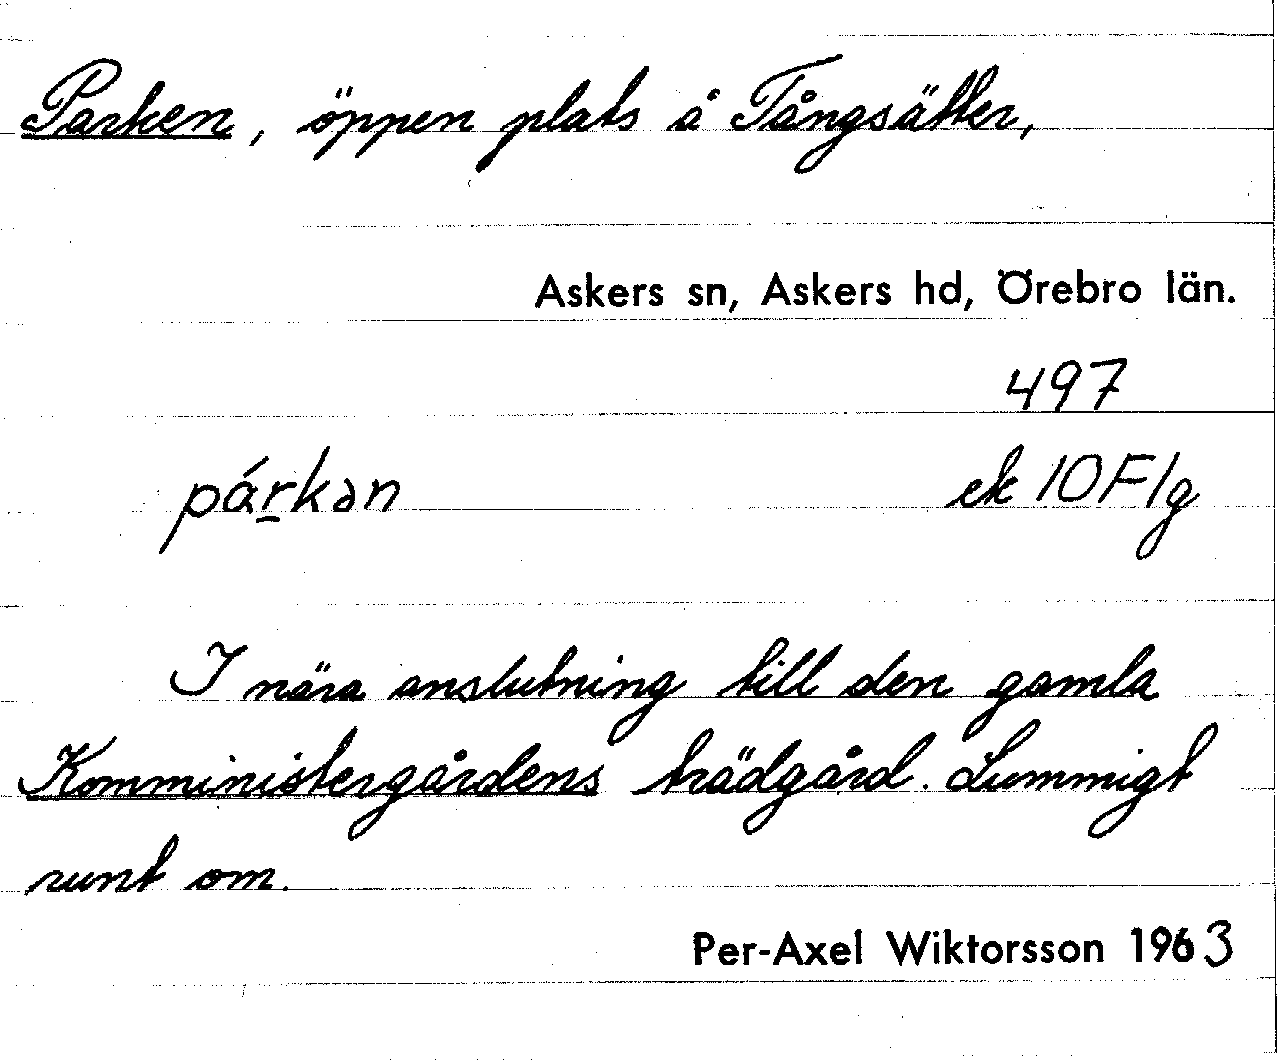 Parken, öppen plats å Tångsätter,
Askers sn, Askers hd, Örebro län.
497
párkən
ek 10F1g
I nära anslutning till den gamla
Komministergårdens trädgård. Lummigt
runt om.
Per-Axel Wiktorsson 1963